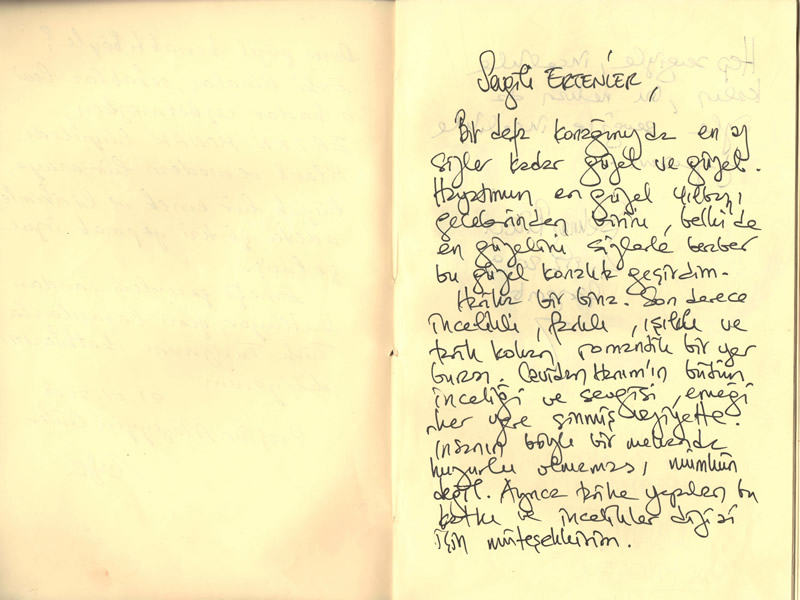 Sevgili ERTENLER,
Bir defa konağınızda en az
sizler kadar güzel ve güzel.
Hayatımın en güzel yılbaşı
gecelerinden birini, belki de
en güzelini sizlerle beraber
bu güzel konakta geçirdim.
Harika bir bina. Son derece
incelikli, farklı, ışıklı ve
tarih kokan romantik bir yer
burası. Cavidan Hanım'ın bütün
inceliği ve sevgisi, emeği
her yere sinmiş vaziyette.
İnsanın böyle bir mekanda
huzurlu olmaması mümkün
değil. Ayrıca tarihe yapılan bu
katkı ve incelikler dizisi
için müteşekkirim.